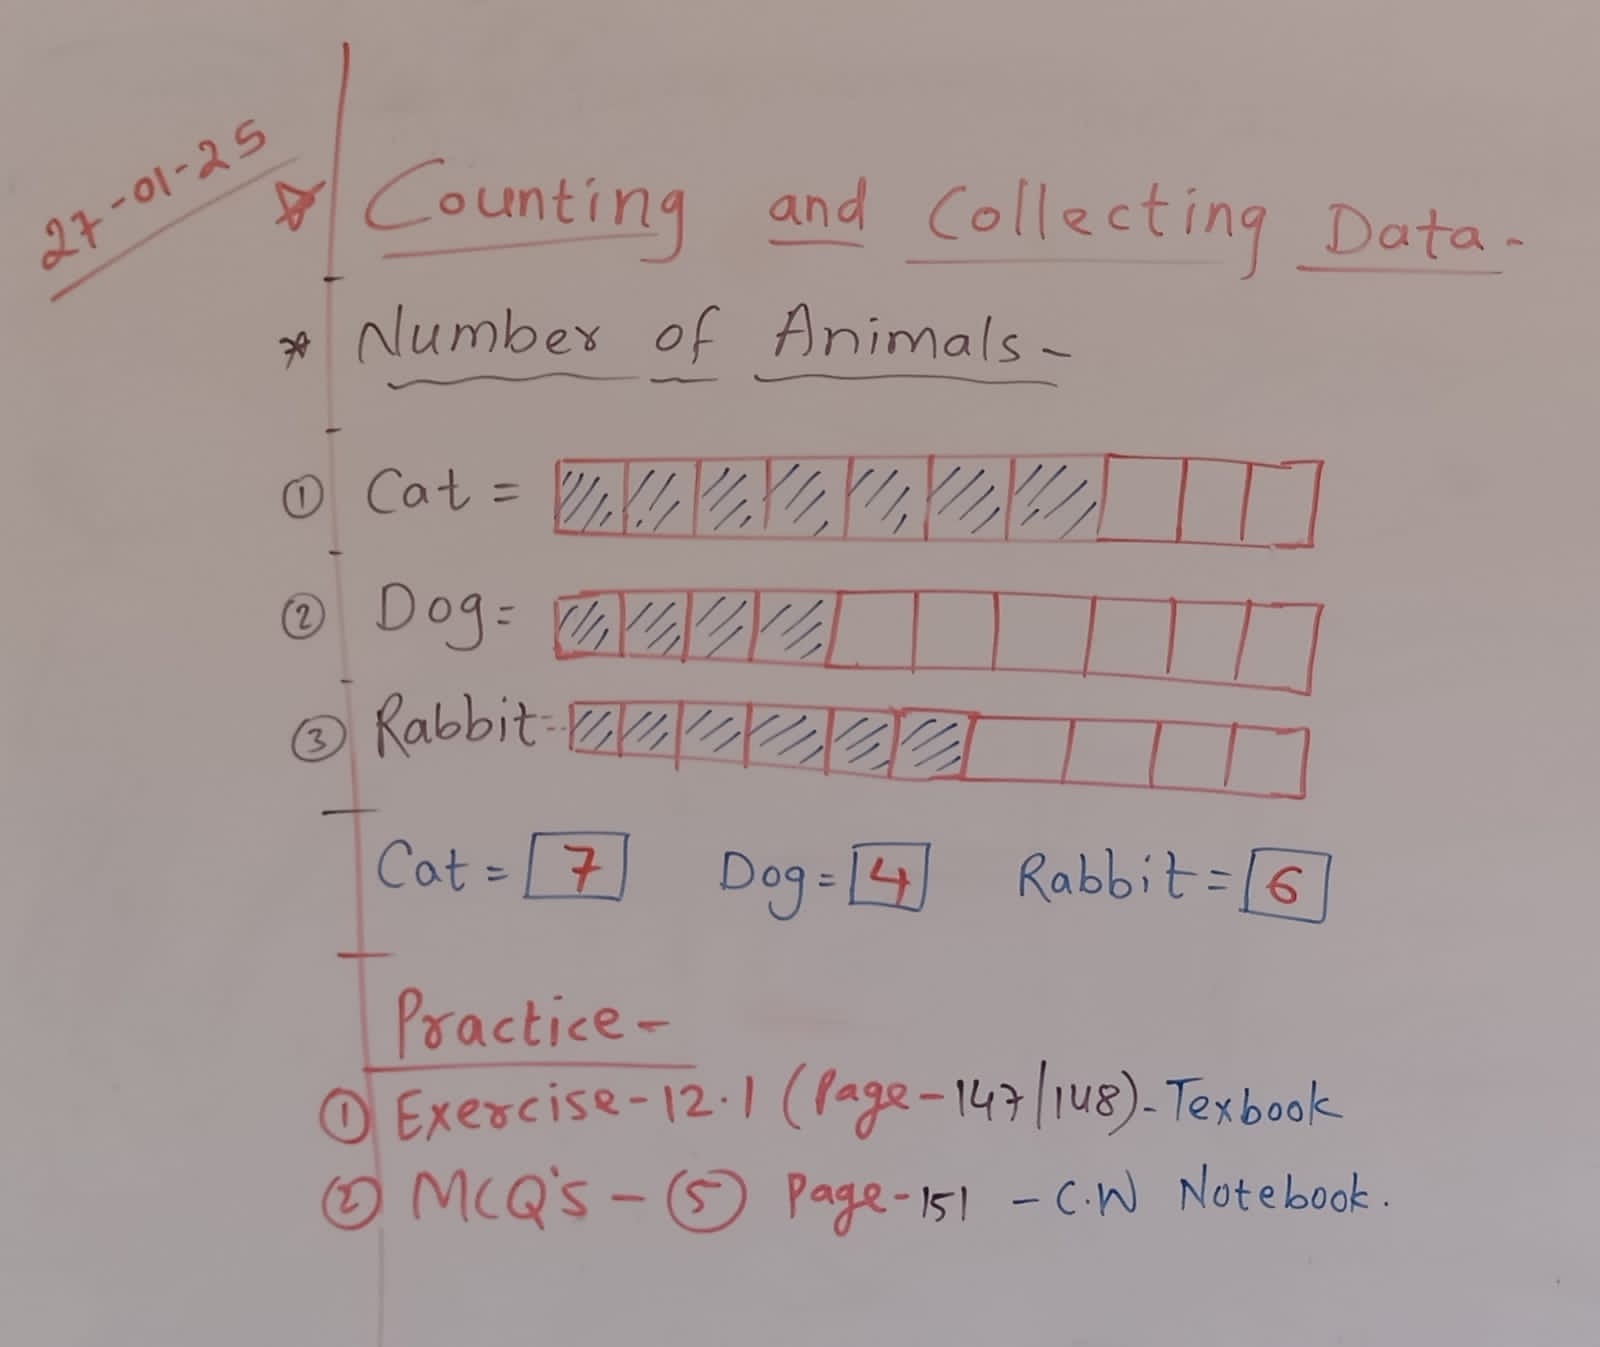 27-01-25
Counting and Collecting Data-
* Number of Animals-
① Cat =
② Dog=
③ Rabbit=
Cat = 7 Dog= 4 Rabbit= 6
Practice-
① Exercise-12.1 (Page-147/148)-Texbook
② MCQ's - ⑤ Page-151 - C.W Notebook.